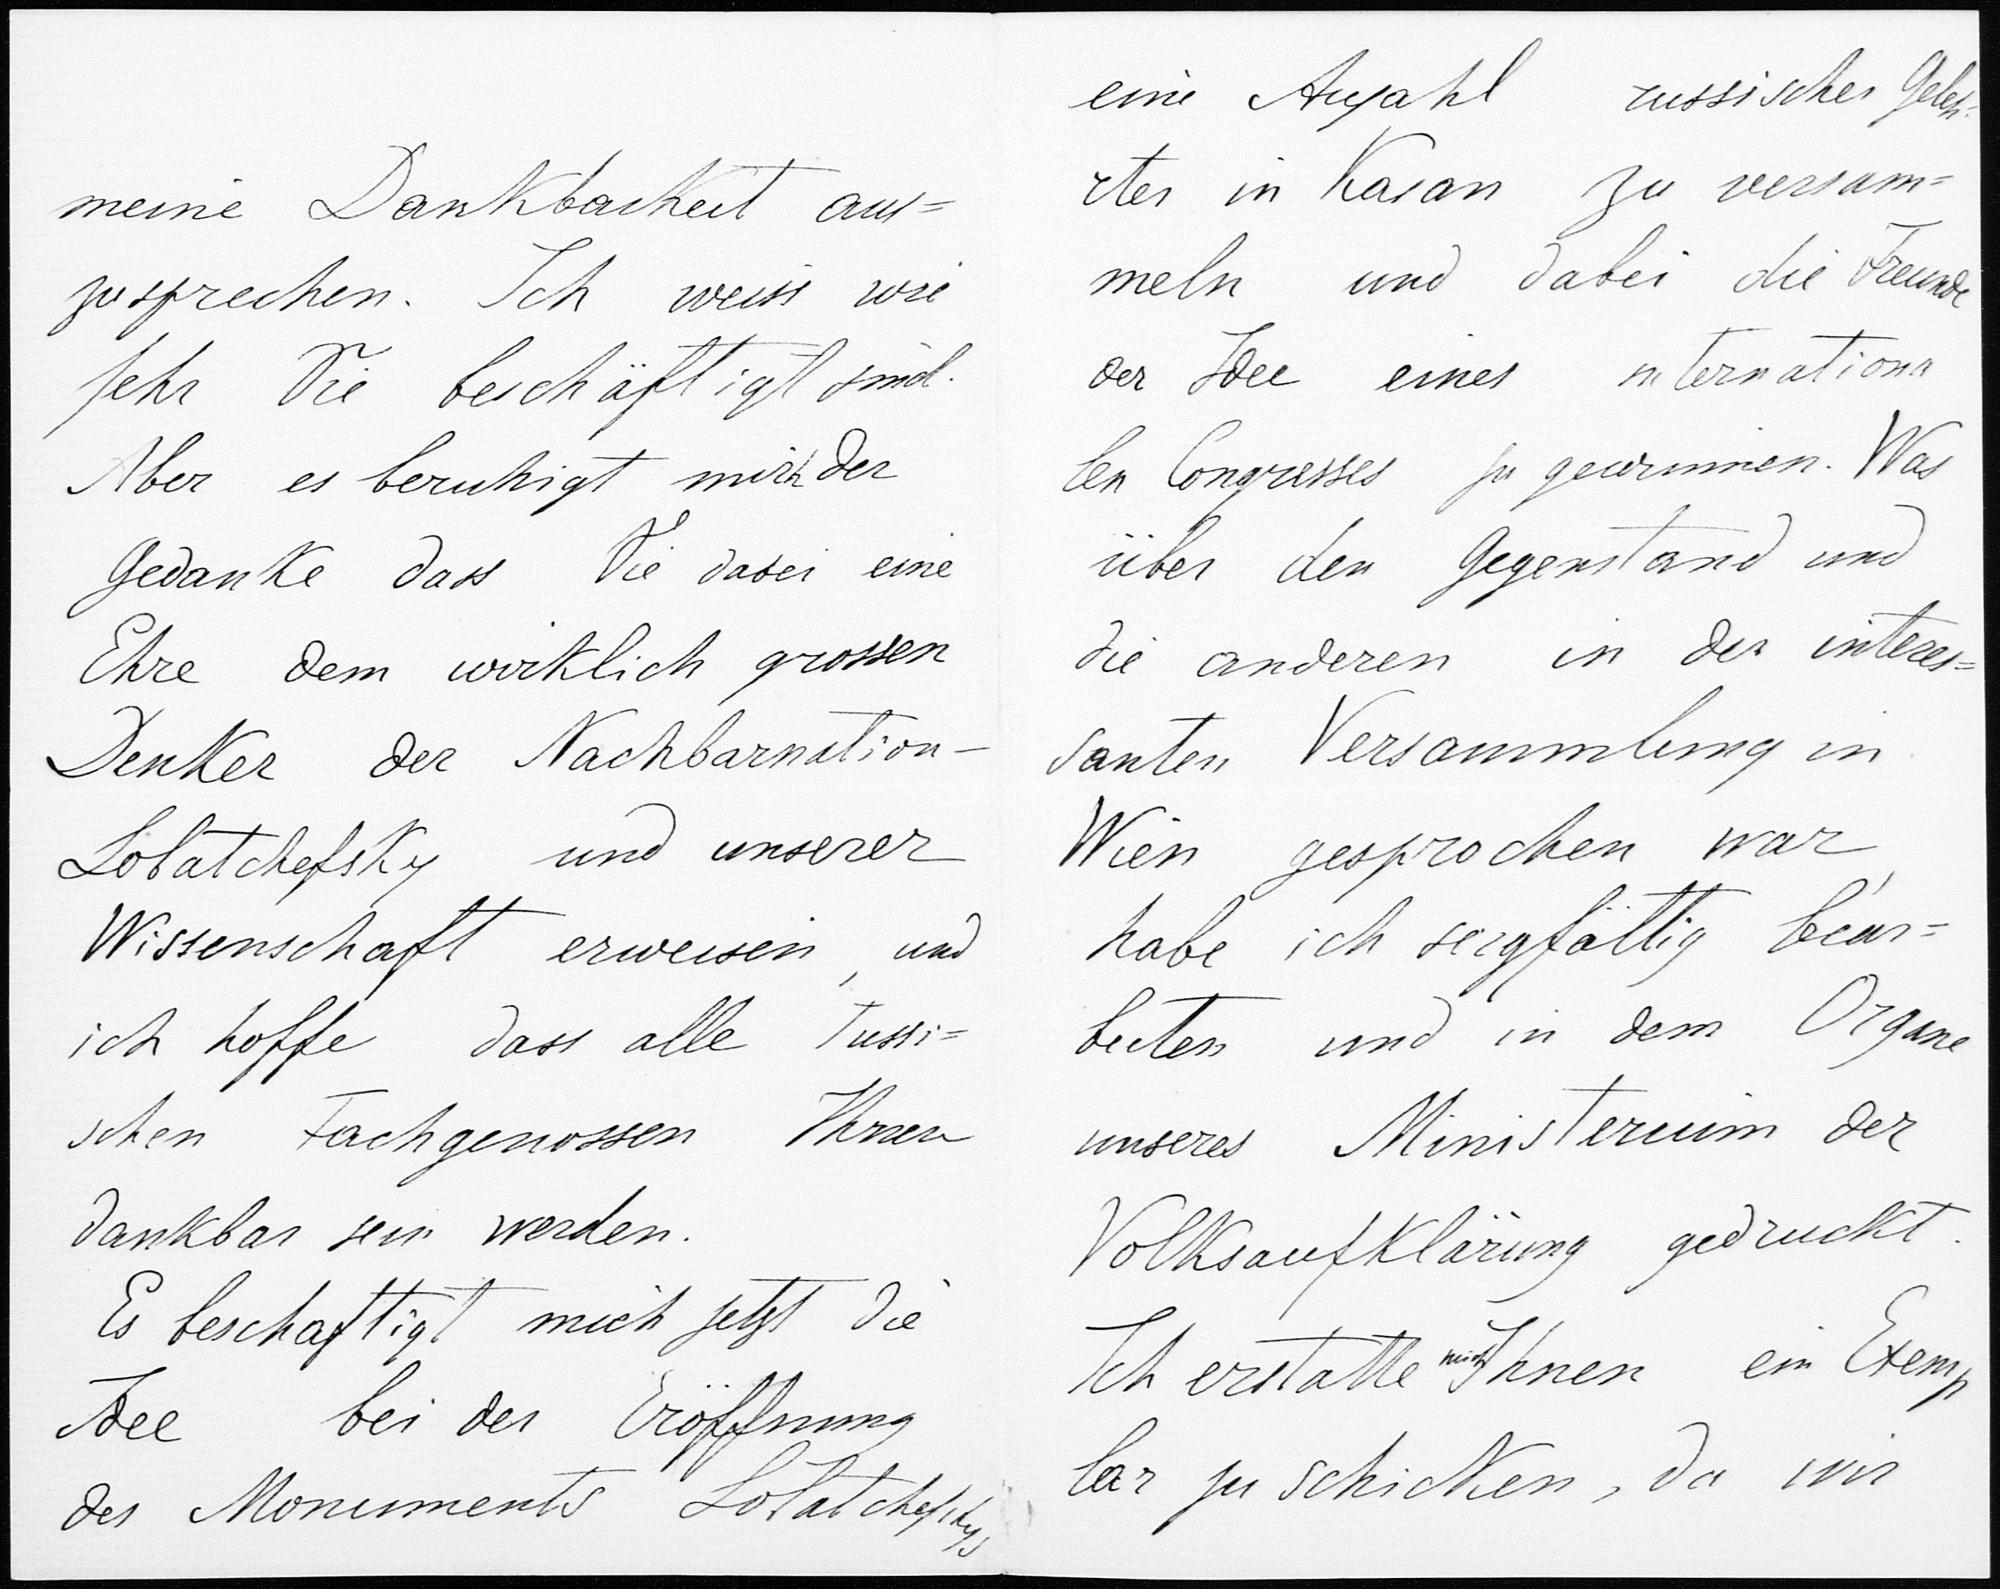 meine Dankbarkeit aus=
zusprechen. Ich weiss wie
sehr Sie beschäftigt sind.
Aber es beruhigt mich der
Gedanke dass Sie dabei eine
Ehre dem wirklich grossen
Denker der Nachbarnation-
Lobatchefsky und unserer
Wissenschaft erweisen, und
ich hoffe dass alle russi=
schen Fachgenossen Ihnen
dankbar sein werden.
Es beschaftigt mich jetzt die
Idee bei der Eröffnung
des Monuments Lobatchefskys
eine Anzahl russischer Geleh=
rter in Kasan zu versam=
meln und dabei die Freunde
der Idee eines internationa
len Congresses zu gewinnen. Was
über den Gegenstand und
die anderen in der interes=
santen Versammlung in
Wien gesprochen war,
habe ich sorgfältig bear=
beiten und in dem Organe
unseres Ministerium der
Volksaufklärung gedruckt.
Ich erstatte mich Ihnen ein Exemp
lar zu schicken, da wir